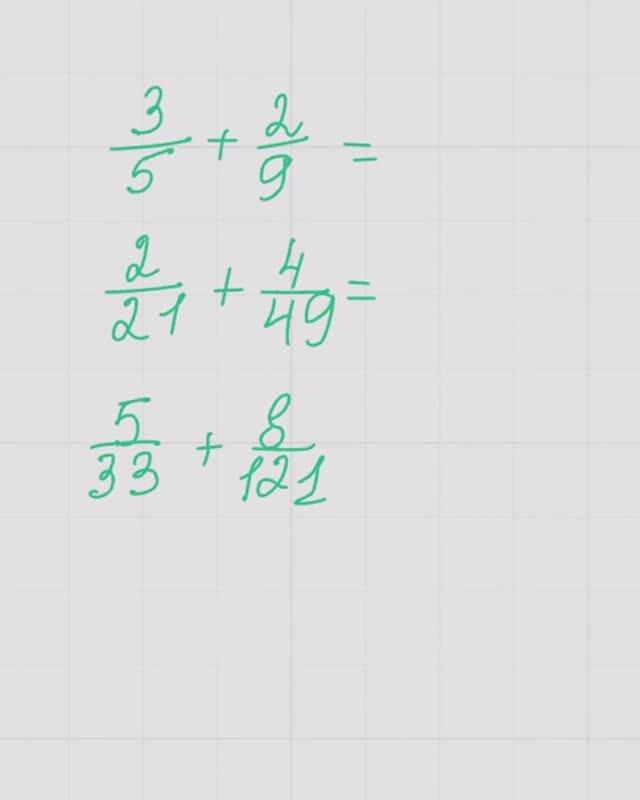 3/5 + 2/9 =
2/21 + 4/49 =
5/33 + 8/121